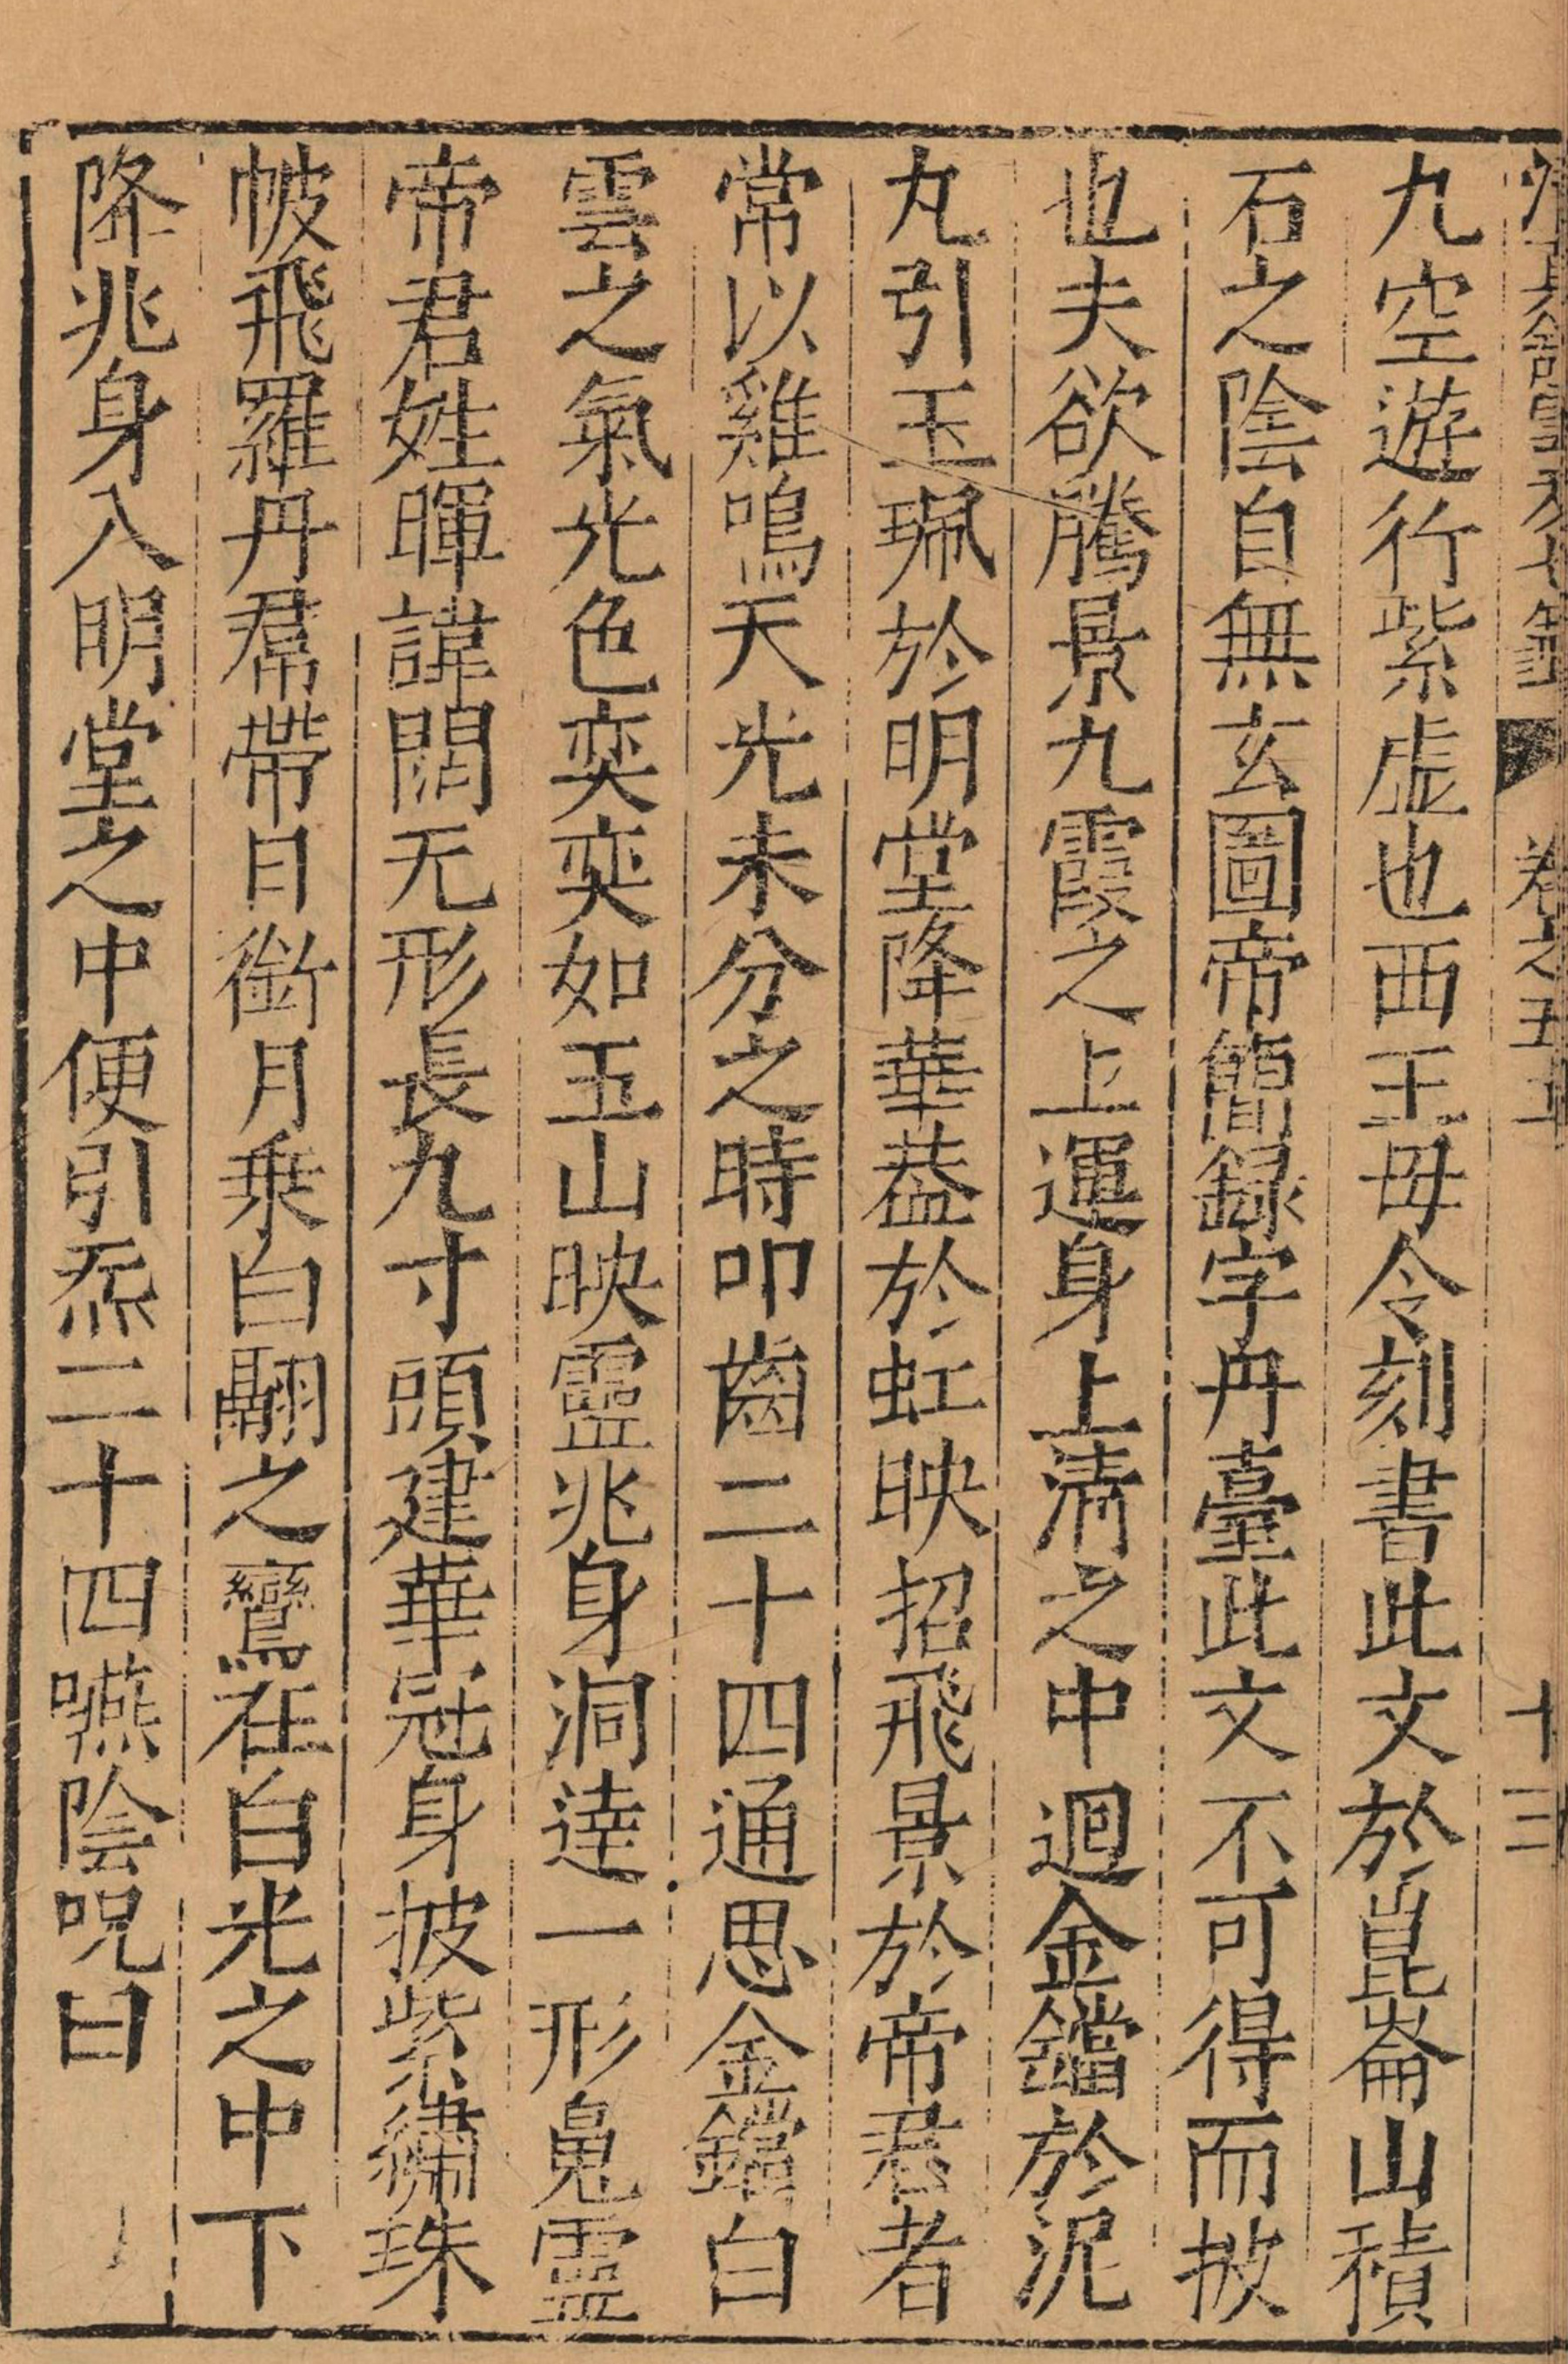 清真館雲笈七籤 卷之五十 十三
九空遊行紫虛也西王母令刻書此文於崑崙山積
石之陰自無玄圖帝簡録字丹臺此文不可得而披
也夫欲騰景九霞之上運身上清之中迴金鐺於泥
丸引玉珮於明堂降華葢於虹映招飛景於帝君者
常以雞鳴天光未分之時叩齒二十四通思金鐺白
雲之氣光色奕奕如玉山映靈兆身洞達一形鬼靈
帝君姓暉諱闊无形長九寸頭建華冠身披紫繡珠
帔飛羅丹帬帶日銜月乗白翮之鸞在白光之中下
降兆身入明堂之中便引炁二十四嚥陰呪曰